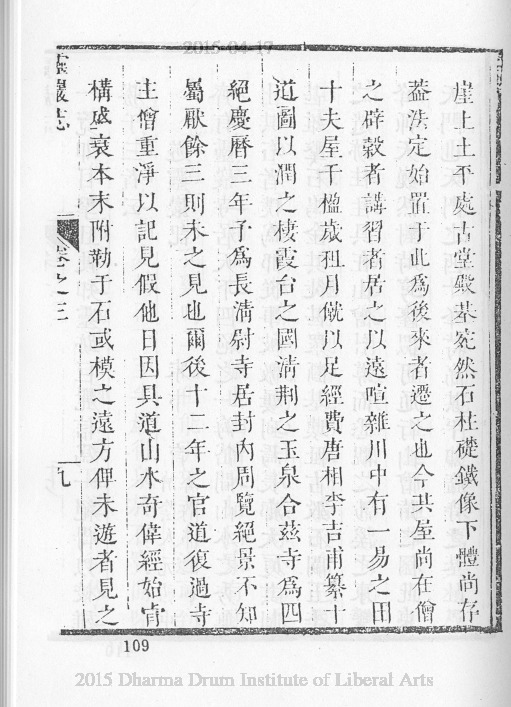 2015-04-17
崖上土平處古堂殿基宛然石柱礎鐵像下體尚存
蓋法定始置于此為後來者遷之也今其屋尚在僧
之辟穀者講習者居之以遠喧雜川中有一易之田
十夫屋千楹歲租月僦以足經費唐相李吉甫纂十
道圖以潤之棲霞台之國清荆之玉泉合茲寺為四
絕慶曆三年子為長清尉寺居封內周覽絕景不知
屬厭餘三則未之見也爾後十二年之官道復過寺
主僧重淨以記見假他日因具道山水奇偉經始肯
構盛衰本末附勒于石或模之遠方俾未遊者見之
靈巖志
卷之三
九
109
2015 Dharma Drum Institute of Liberal Arts